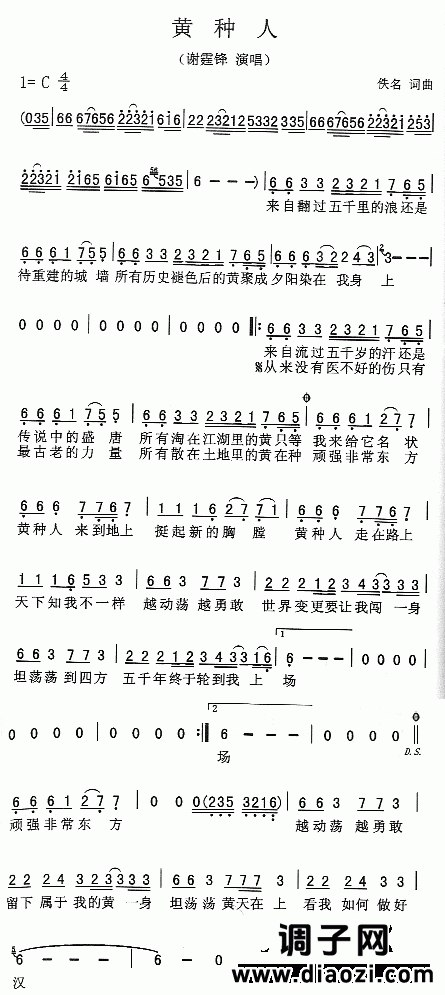 黄 种 人
（谢霆锋 演唱）
1= C 4/4
佚名 词曲
(035 66 67656 22321 6161 22 23212 532332 335 66 676566 22321 253
22321 22165 6165 6 535 6 - - ) 66 33 2321 765
来自翻过五千里的浪还是
6661 755 66 33 2321 765 666 32 243 3 - -
待重建的城 墙 所有历史褪色后的黄聚成 夕阳染在 我身 上
0 0 0 0 0 0 0 0 0 0 0 0 66 33 2321 765
来自流过五千岁的汗还是
※从来没有医不好的伤只有
6661 755 66 33 2321 765 66 61 277
传说中的盛 唐 所有淘在江湖里的黄只等 我来给它名 状
最古老的力 量 所有散在土地里的黄在种 顽强非常东 方
666 7767 11 16 2771 666 7767
黄种人 来到地上 挺起新的胸 膛 黄种人 走在路上
111653 663 773 222123 43333
天下知我不一样 越动荡 越勇敢 世界变更要让我闯 一身
663 773 2221243316 1. 6 - - - 0 0 0 0
坦荡荡 到四方 五千年终于轮到我 上 场
0 0 0 0 0 0 0 0 2. 6 - - - 0 0 0 0
场
D.S.
66 61 277 0 0 0(235 3216) 663 773
顽强非常东 方 越动荡 越勇敢
22 24 323333 663 773 22 24 332
留下 属于 我的黄 一身 坦荡荡 黄天在上 看我 如何 做好
6 - - - 6 - 0 0
汉
调子网
www.diaozi.com